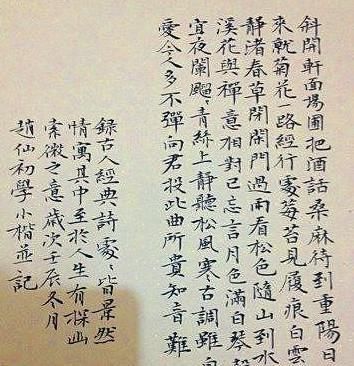 斜開軒面場圃把酒話桑麻待到重陽日
來就菊花一路經行處莓苔見履痕白雲
靜渚春草閉閑門過雨看松色隨山到水
溪花與禪意相對已忘言月色滿白琴
宜夜闌飀〻青絲上靜聽松風寒古調雖
愛今人多不彈向君投此曲所貴知音難
錄古人經典詩處〻皆景然
情寓其中至於人生有探幽
索微之意歲次壬辰冬月
趙仙初學小楷並記